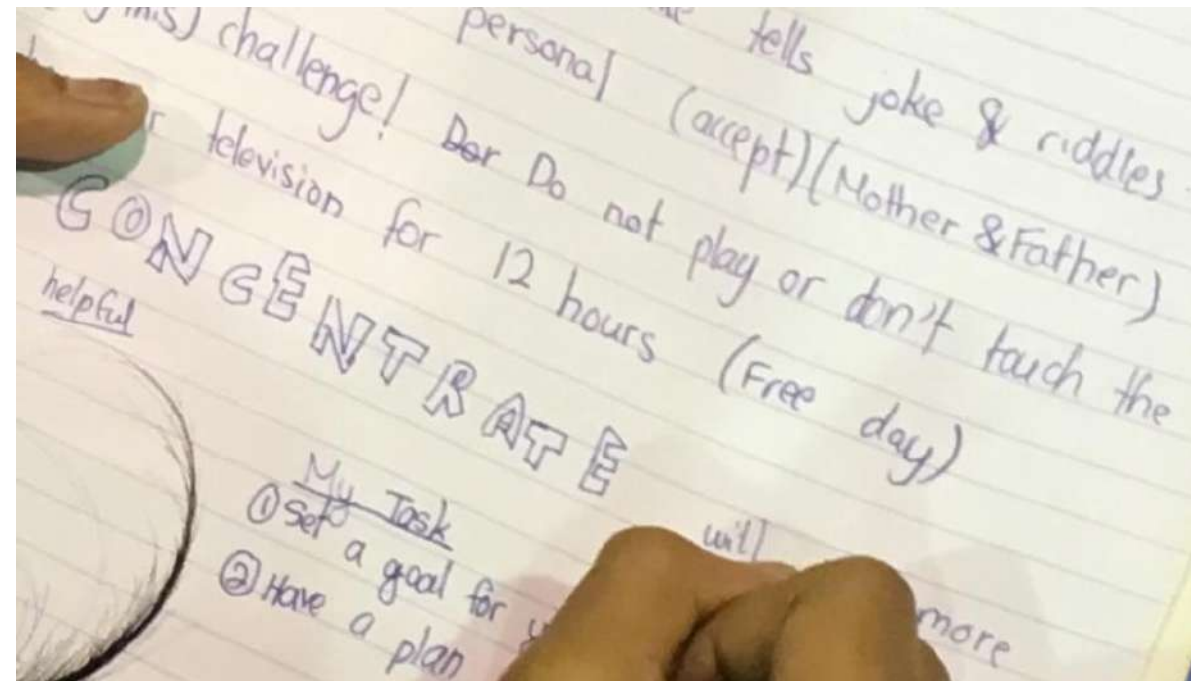 tells joke & riddles
personal (accept) (Mother & Father)
challenge! Do not play or don't touch the
television for 12 hours (Free day)
CONCENTRATE
helpful
My Task
① Set a goal for
will
② Have a plan
more